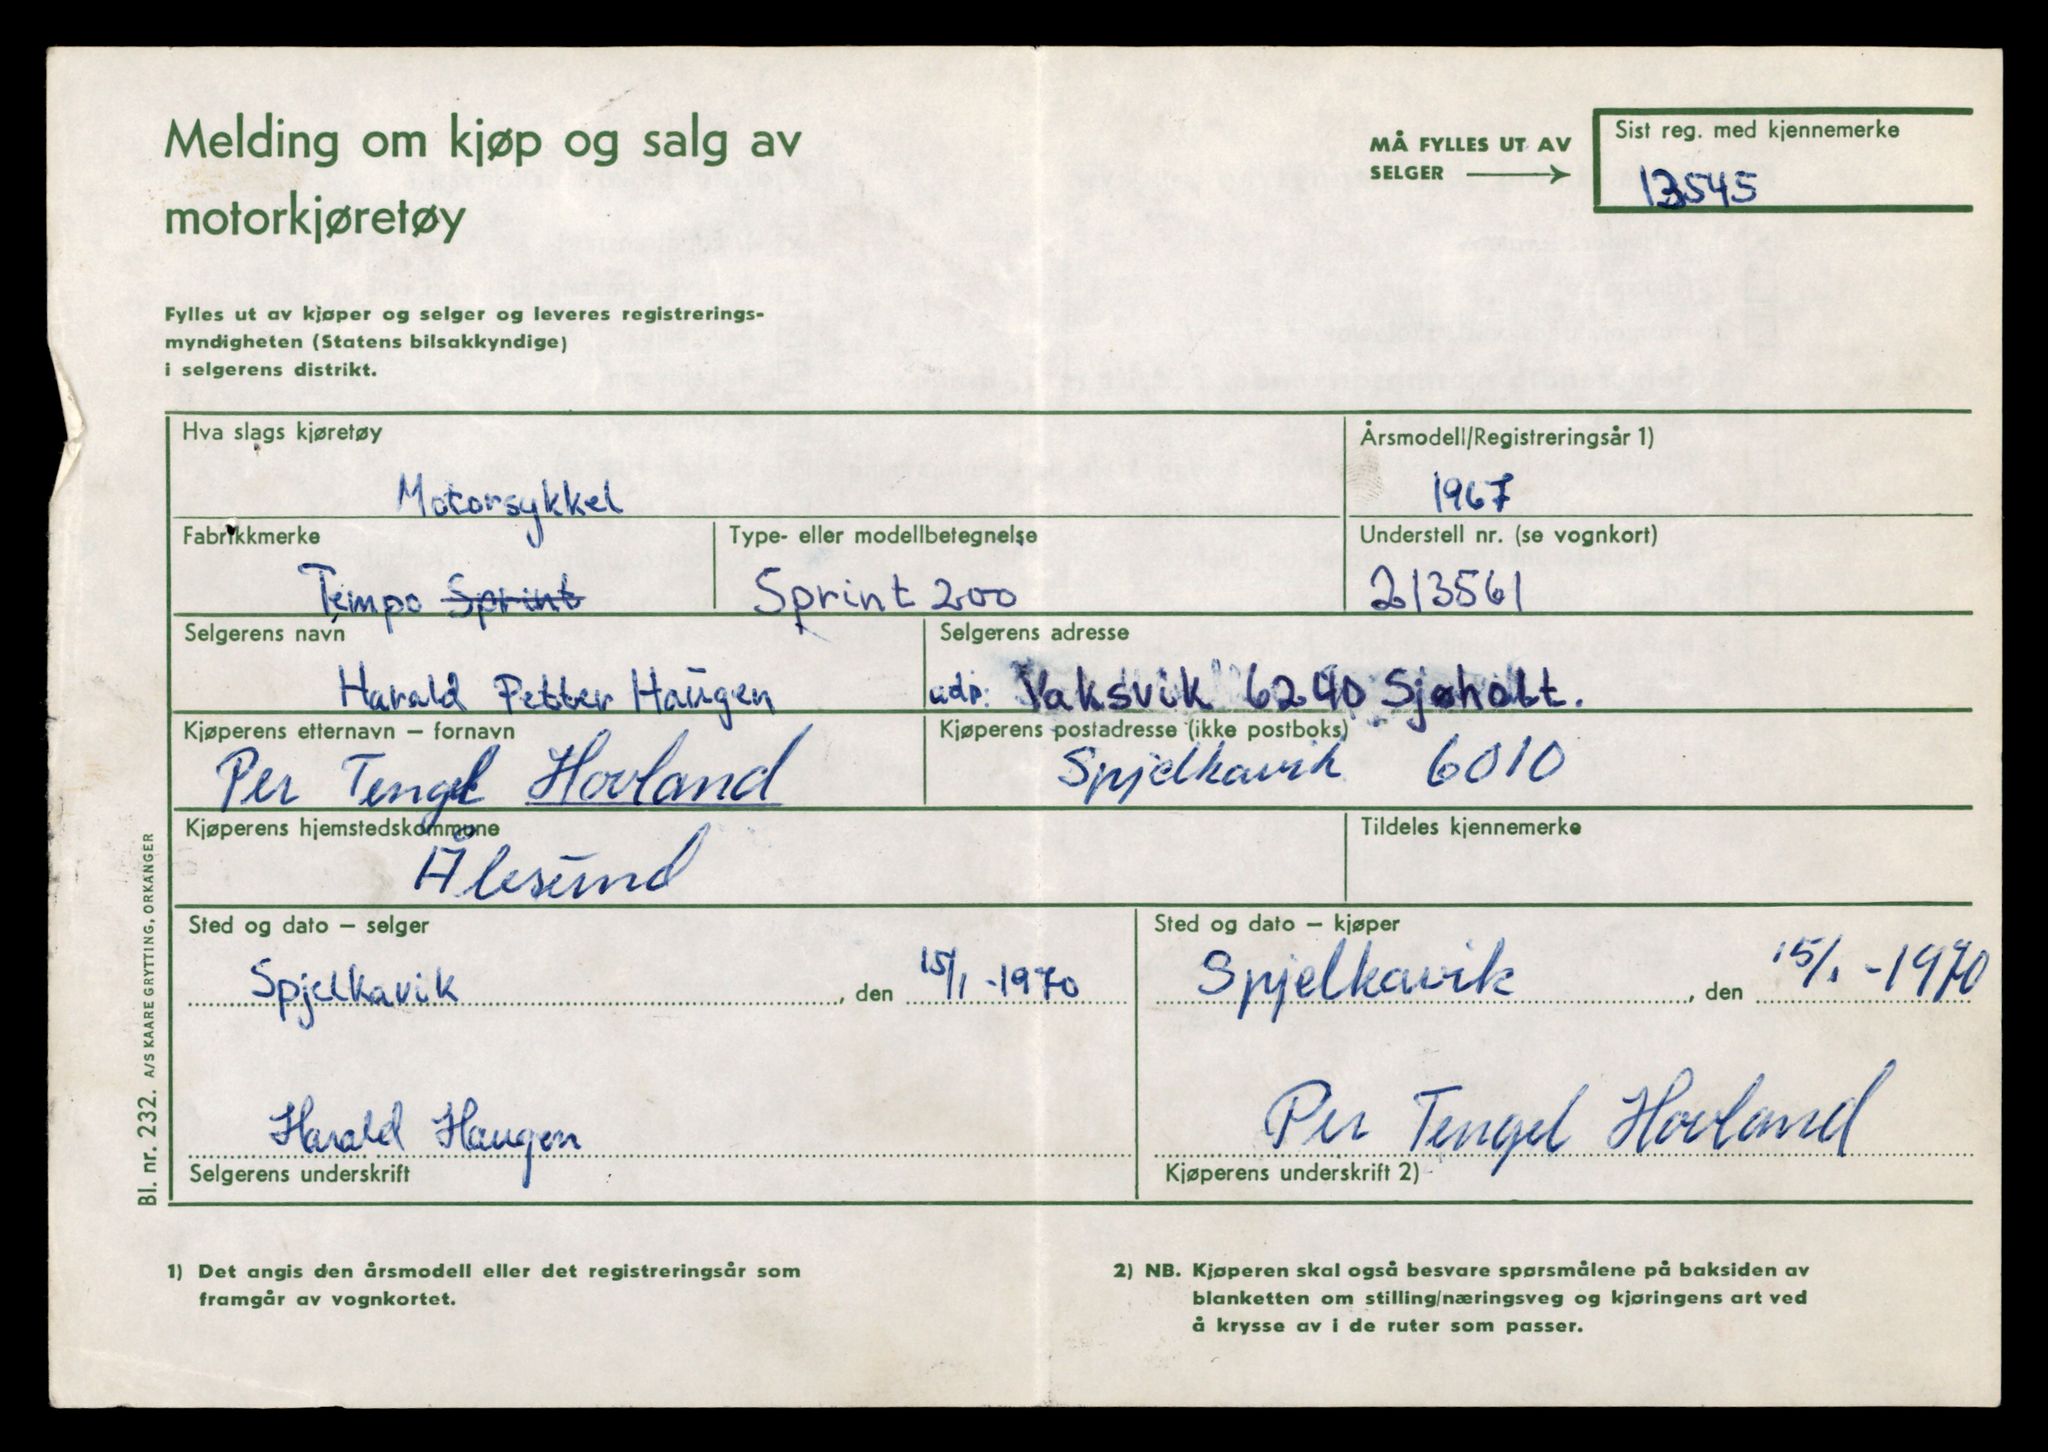 Melding om kjøp og salg av
motorkjøretøy
MÅ FYLLES UT AV
SELGER
Sist reg. med kjennemerke
13545
Fylles ut av kjøper og selger og leveres registrerings-
myndigheten (Statens bilsakkyndige)
i selgerens distrikt.
Hva slags kjøretøy
Motorsykkel
Årsmodell/Registreringsår 1)
1967
Fabrikkmerke
Tempo Sprint
Type- eller modellbetegnelse
Sprint 200
Understell nr. (se vognkort)
213561
Selgerens navn
Harald Petter Haugen
Selgerens adresse
adr: Vaksvik 6240 Sjøholt.
Kjøperens etternavn – fornavn
Per Tengel Hovland
Kjøperens postadresse (ikke postboks)
Spjelkavik 6010
Kjøperens hjemstedskommune
Ålesund
Tildeles kjennemerke
Sted og dato – selger
Spjelkavik, den 15/1 -1970
Sted og dato – kjøper
Spjelkavik, den 15/1 -1970
Harald Haugen
Selgerens underskrift
Per Tengel Hovland
Kjøperens underskrift 2)
Bl. nr. 232. A/S KAARE GRYTTING, ORKANGER
1) Det angis den årsmodell eller det registreringsår som
framgår av vognkortet.
2) NB. Kjøperen skal også besvare spørsmålene på baksiden av
blanketten om stilling/næringsveg og kjøringens art ved
å krysse av i de ruter som passer.